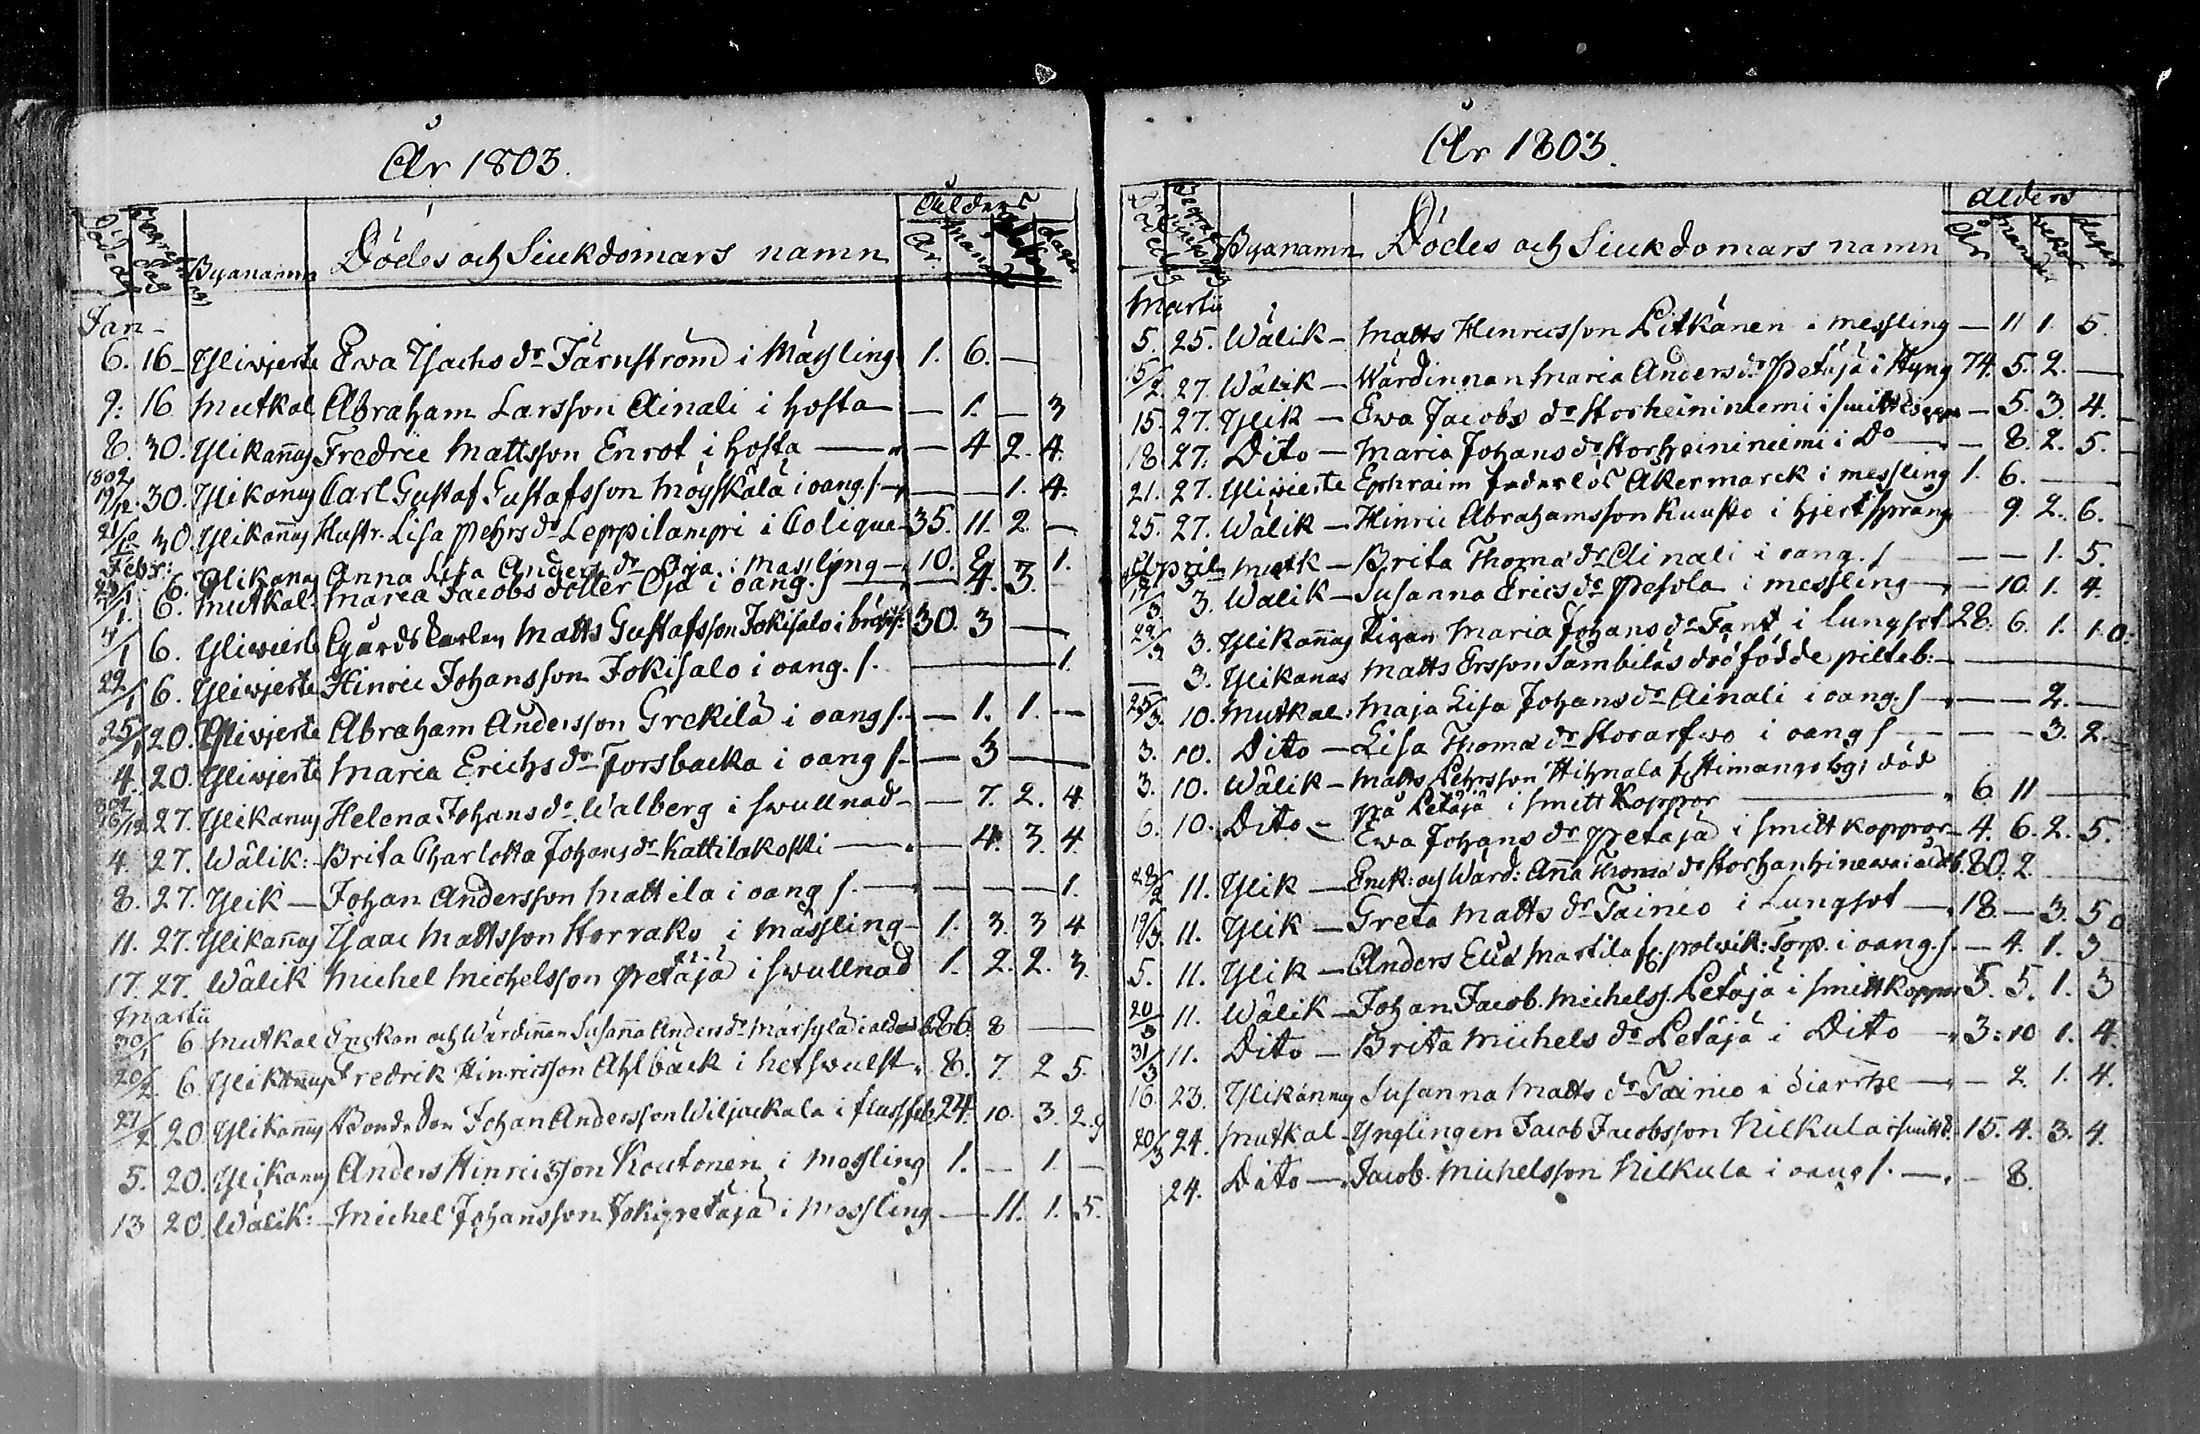 År 1803.
Döde dag Begrafnings dag Byanamn Dödes och Siukdomars namn Ålders År. Månad Wekor dagar
Jan-
6. 16- Yliwjerte Ewa Isachs dr Järnström i Mässling. 1. 6. —
9. 16 Mutkal Abraham Larsson Ainali i hosta — — 1. — 3
8. 30. Ylikannus Fredric Mattsson Enrot i hosta — — 4 2. 4.
1802 19/12. 30. Ylikannus Carl Gustaf Gustafsson Möyskälä i oang. s. — — — 1. 4.
21/12 30. Ylikannus Hustr. Lisa Pehrs dr Leppilampi i Colique — 35. 11. 2 —
Febr:
6. Ylikanus Anna Lisa Anders dr Oja i massling — 10. 2. 1.
6. Mutkal. Maria Jacobs dotter Oja i oang. s. — — 4. 3.
4/1 6. Yliwierte Gårdskarlen Matts Gustafsson Jokisalo i 30. 3 —
22/1 6. Yliwjerte Hinric Johansson Jokisalo i oang. s. — 1.
25/1 20. Yliwjerte Abraham Andersson Grekilä i oang s. — 1. 1. —
4. 20. Yliwjerte Maria Erichs dr Forsbacka i oang s. — 3 —
1802 16/12 27. Ylikanus Helena Johans dr Walberg i swullnad — — 7. 2. 4
4. 27. Wälik: Brita Charlotta Johans dr Kattilakoski — — 4. 3. 4.
8. 27. Ylik — Johan Andersson Mattila i oang s. — — — — 1.
11. 27. Ylikannus Isaac Mattsson Horrako i massling — 1. 3. 3 4
17. 27. Wälik Michel Michelsson Petäjä i swullnad 1. 2. 2. 3.
Martii
30/1 6 Mutkal Enkan och Wärdinnan Susanna Anders dr Märsylä i ålder 86 8 —
20/2. 6 Ylikannus Fredrik Hinricsson Ahlbäck i hetswulst. 8. 7. 2 5.
27/2. 20 Ylikannus Bonde Son Johan Andersson Wiljackala i 24. 10. 3. 2.
5. 20. Ylikanus Anders Hinricsson Koutonen i Massling 1. — 1. —
13 20. Wälik: — Michel Johansson Jokipetäjä i Massling — 11. 1. 5.
År 1803.
Byanamn Dödes och Siukdomars namn ålders År månader wekor dagar
Martii
5. 25. Wälik — Matts Hinricsson Pitkänen i messling — 11 1. 5.
15/2 27. Wälik — Wärdinnan Maria Anders dr Petäjä i Styng 74. 5. 2. —
15. 27. Ylik — Ewa Jacobs dr Storheininiemi i smittkoppor — 5. 3. 4. —
18 27. Dito — Maria Johans dr Storheininiemi i Do — — 8. 2. 5. —
21. 27. Yliwierte Ephraim faderlös Åkermarck i messling 1. 6. — —
25. 27. Wälik — Hinric Abrahamsson Kuusto i hjertsprång — 9. 2. 6. —
April
Mutk — Brita Thoma dr Ainali i oang. s — — 1. 5.
3. Walik — Susanna Erics dr Pesola i messling — — 10. 1. 4.
22/3 3. Ylikannus Pigan Maria Johans dr Fant i Lungsot. 28. 6. 1. 1.
— 3. Ylikanas Matts Ersson Sambiläs dödfödde pilteb: —
25/3. 10. Mutkal: Maja Lisa Johans dr Ainali i oang. s — — — 2. —
3. 10. Dito — Lisa Thoma dr Storarfwo i oang s — — — 3. 2. —
3. 10. Wälik — Matts Pehrsson Hihnala fr Himango by; död
på Petäjä i smittkoppor — 6 11 —
6. 10. Dito — Ewa Johans dr Petäjä i smittkoppor — 4. 6. 2. 5.
28/2 11. Ylik — Enck: och Wärd: Anna Thoma dr Storhanhinewa i åld: 80. 2.
19/3. 11. Ylik — Greta Matts dr Tainio i Lungsot — 18. — 3. 5
5. 11. Ylik — Anders Martila fr. polwik: Torp. i oang s. — 4. 1. 3
20/3 11. Wälik — Johan Jacob. Michelss. Petäjä i smittkoppor 5. 5. 1. 3
31/3 11. Dito — Brita Michels dr Petäjä i Dito — 3: 10 1. 4.
16. 23. Ylikannus Susanna Matts dr Tainio i diarrhe — — 2. 1. 4.
20/3 24. Mutkal — Ynglingen Jacob Jacobsson Hilkula i 15. 4. 3. 4.
24. Dito — Jacob Michelsson Hilkula i oang s. — — 8.